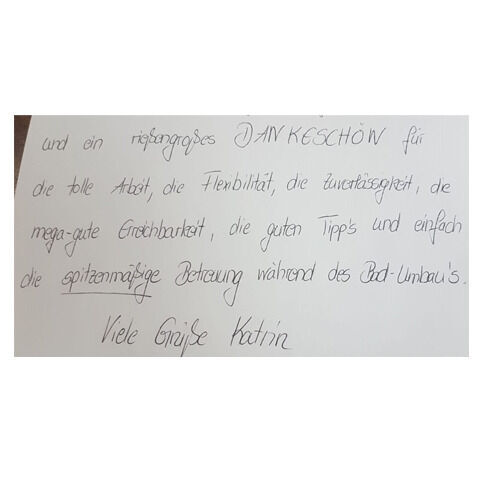 und ein rießengroßes DANKESCHÖN für
die tolle Arbeit, die Flexibilität, die Zuverlässigkeit, die
mega-gute Erreichbarkeit, die guten Tipp's und einfach
die spitzenmäßige Betreuung während des Bad-Umbau's.
Viele Grüße Katrin